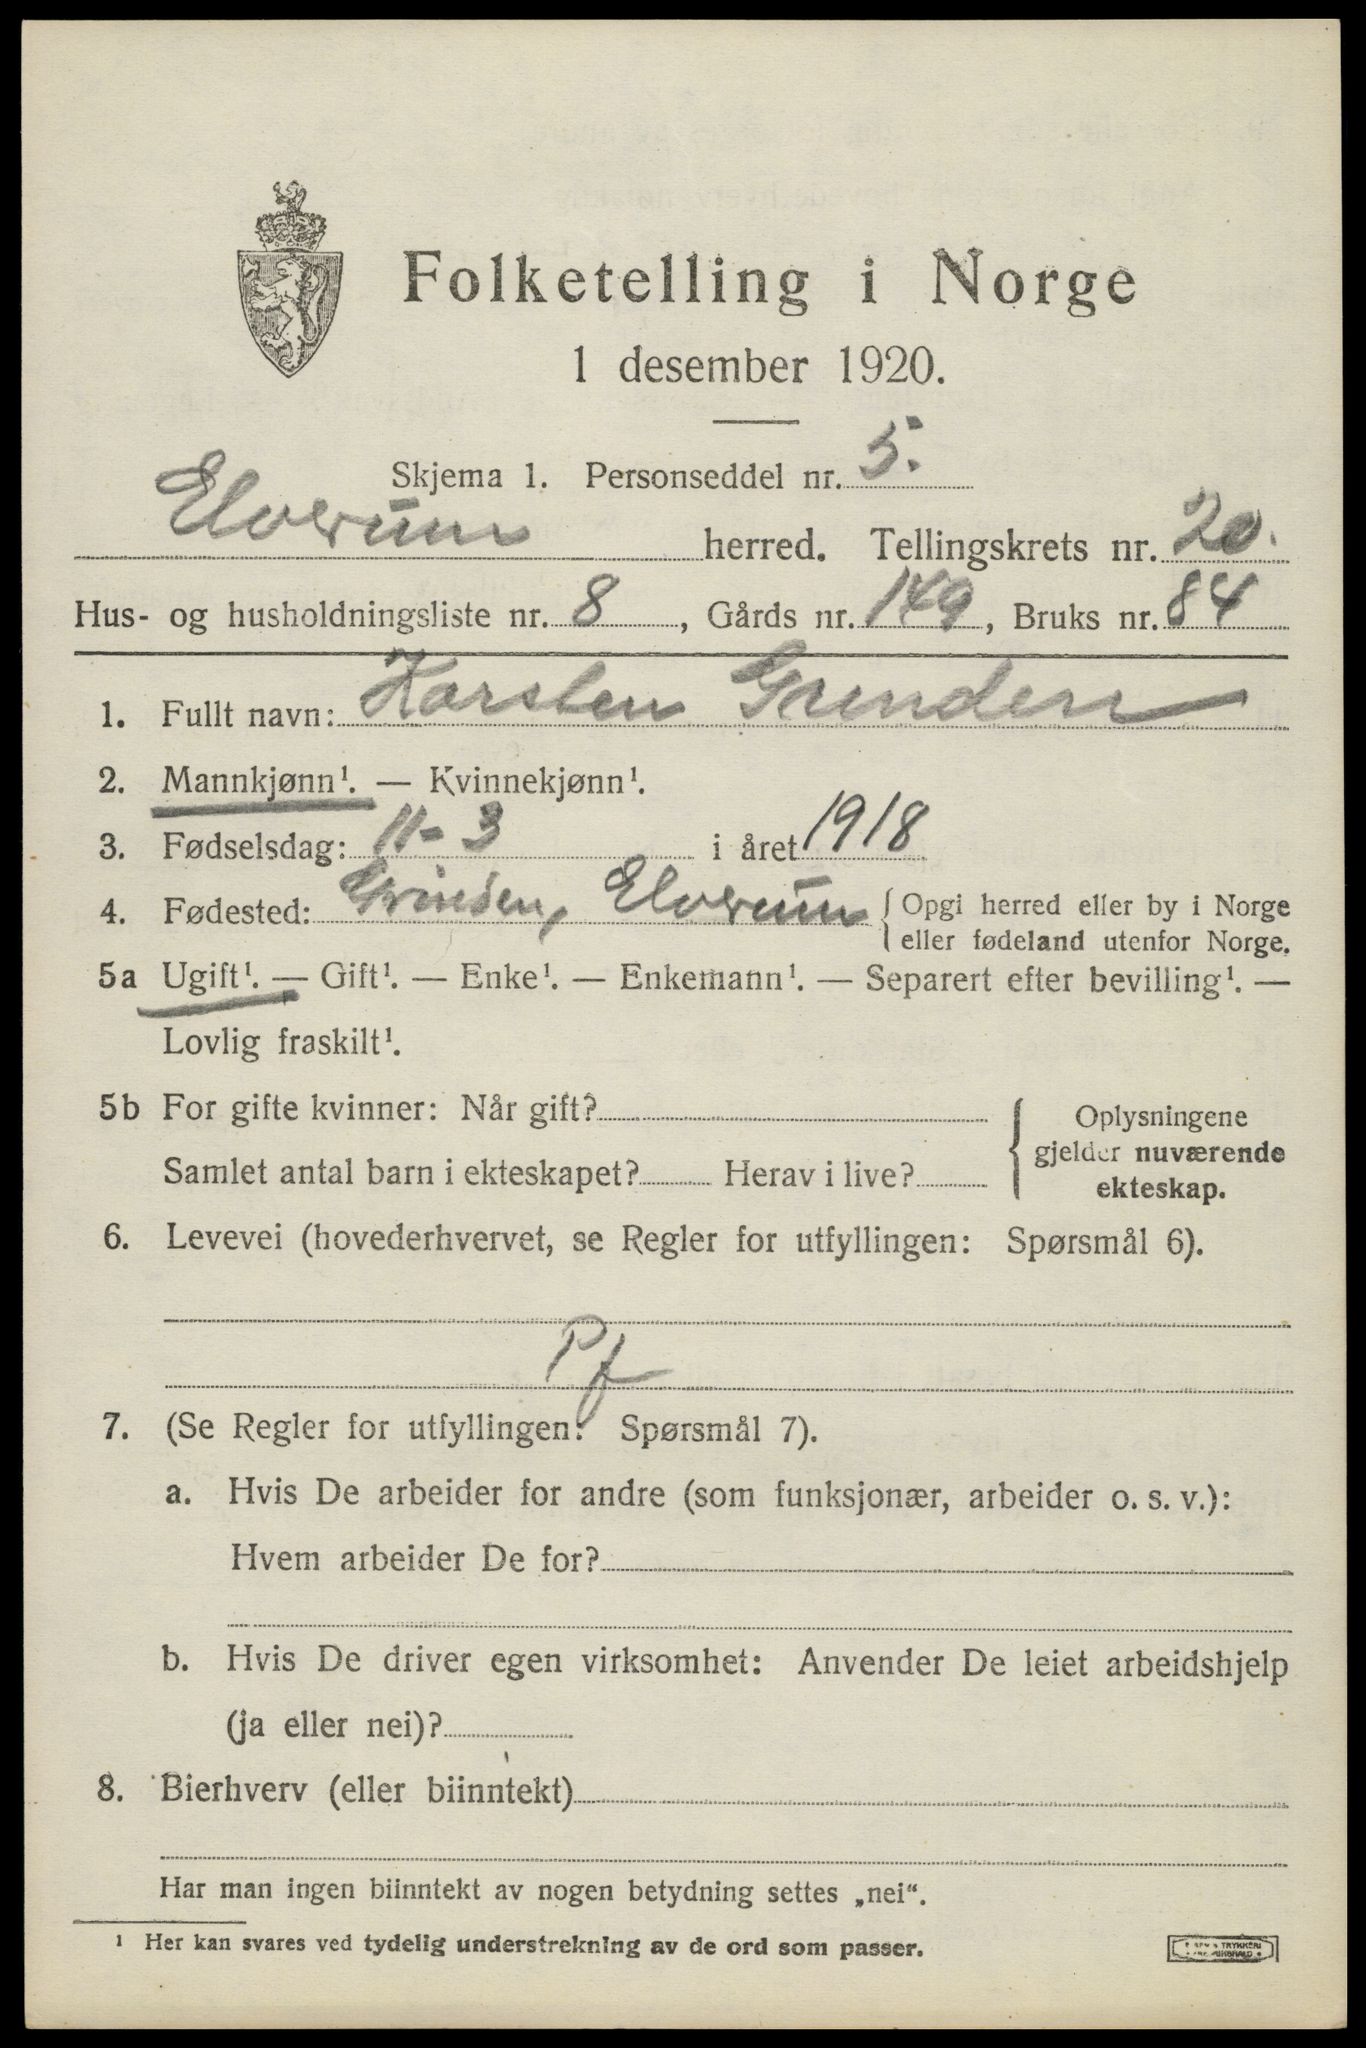 Folketelling i Norge
1 desember 1920.
Skjema 1. Personseddel nr. 5.
Elverum herred. Tellingskrets nr. 20.
Hus- og husholdningsliste nr. 8, Gårds nr. 149, Bruks nr. 84
1. Fullt navn: Karsten Grinden
2. Mannkjønn¹. — Kvinnekjønn¹.
3. Fødselsdag: 11-3 i året 1918
4. Fødested: Grinden, Elverum { Opgi herred eller by i Norge
eller fødeland utenfor Norge.
5a Ugift¹. — Gift¹. — Enke¹. — Enkemann¹. — Separert efter bevilling¹. —
Lovlig fraskilt¹.
5b For gifte kvinner: Når gift?
Samlet antal barn i ekteskapet? Herav i live?
{ Oplysningene
gjelder nuværende
ekteskap.
6. Levevei (hovederhvervet, se Regler for utfyllingen: Spørsmål 6).
Pf
7. (Se Regler for utfyllingen: Spørsmål 7).
a. Hvis De arbeider for andre (som funksjonær, arbeider o. s. v.):
Hvem arbeider De for?
b. Hvis De driver egen virksomhet: Anvender De leiet arbeidshjelp
(ja eller nei)?
8. Bierhverv (eller biinntekt)
Har man ingen biinntekt av nogen betydning settes „nei“.
¹ Her kan svares ved tydelig understrekning av de ord som passer.